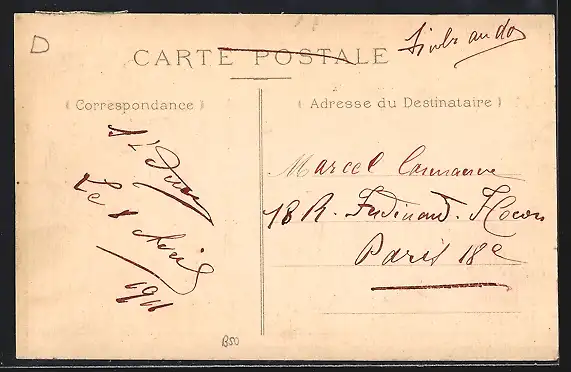 D
CARTE POSTALE
Timbr au dos
( Correspondance )
( Adresse du Destinataire )
St
Le 1 Avril
1911
Marcel
18 R. Ferdinand. Flocon
Paris 18e
B50